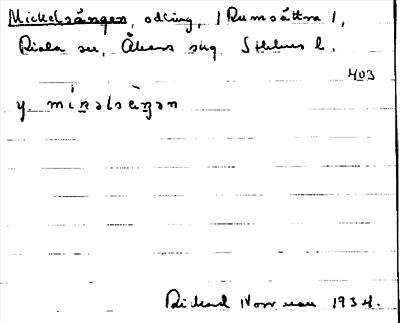 Mickelsängen, odling, (Rumsättra),
Riala sn, Åkers skg. Sthlms l.
403
y mìkəlsɛ̀ŋən
Rickard Norrman 1934.